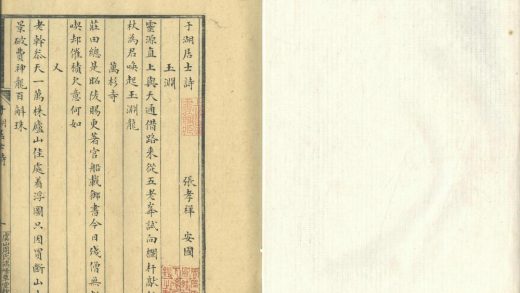 于湖居士詩
張孝祥 安國
玉淵
靈源直上與天通借路来從五老峯試向欄杆敲
杖為君喚起玉淵龍
萬杉寺
莊田總是昭陵賜更著官船載御書今日殘僧無
喫却催積欠意何如
又
老幹叅天一萬株廬山佳處着浮圖只因買斷山
景破費神龍百斛珠